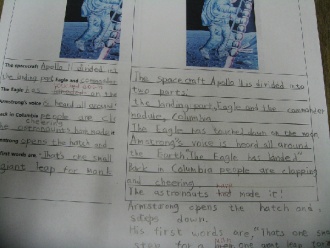 The spacecraft Apollo 11 divided int
the landing part, Eagle and comman
The Eagle
Armstrong's voice is heard all around
Back in Columbia people are cl
cheering
The astronauts had made
opens the hatch and
first words are "That's one small
giant leap for mank
The spacecraft Apollo 11 is divided into
two parts,
the landing part, Eagle and the commander
module, Columbia
The Eagle has touched down on the moon.
Armstrong's voice is heard all around
the Earth "The Eagle has landed"
Back in Columbia people are clapping
and cheering
The astronauts had made it!
Armstrong opens the hatch and
steps down.
His first words are, "Thats one sm
step for a man one giant leap for